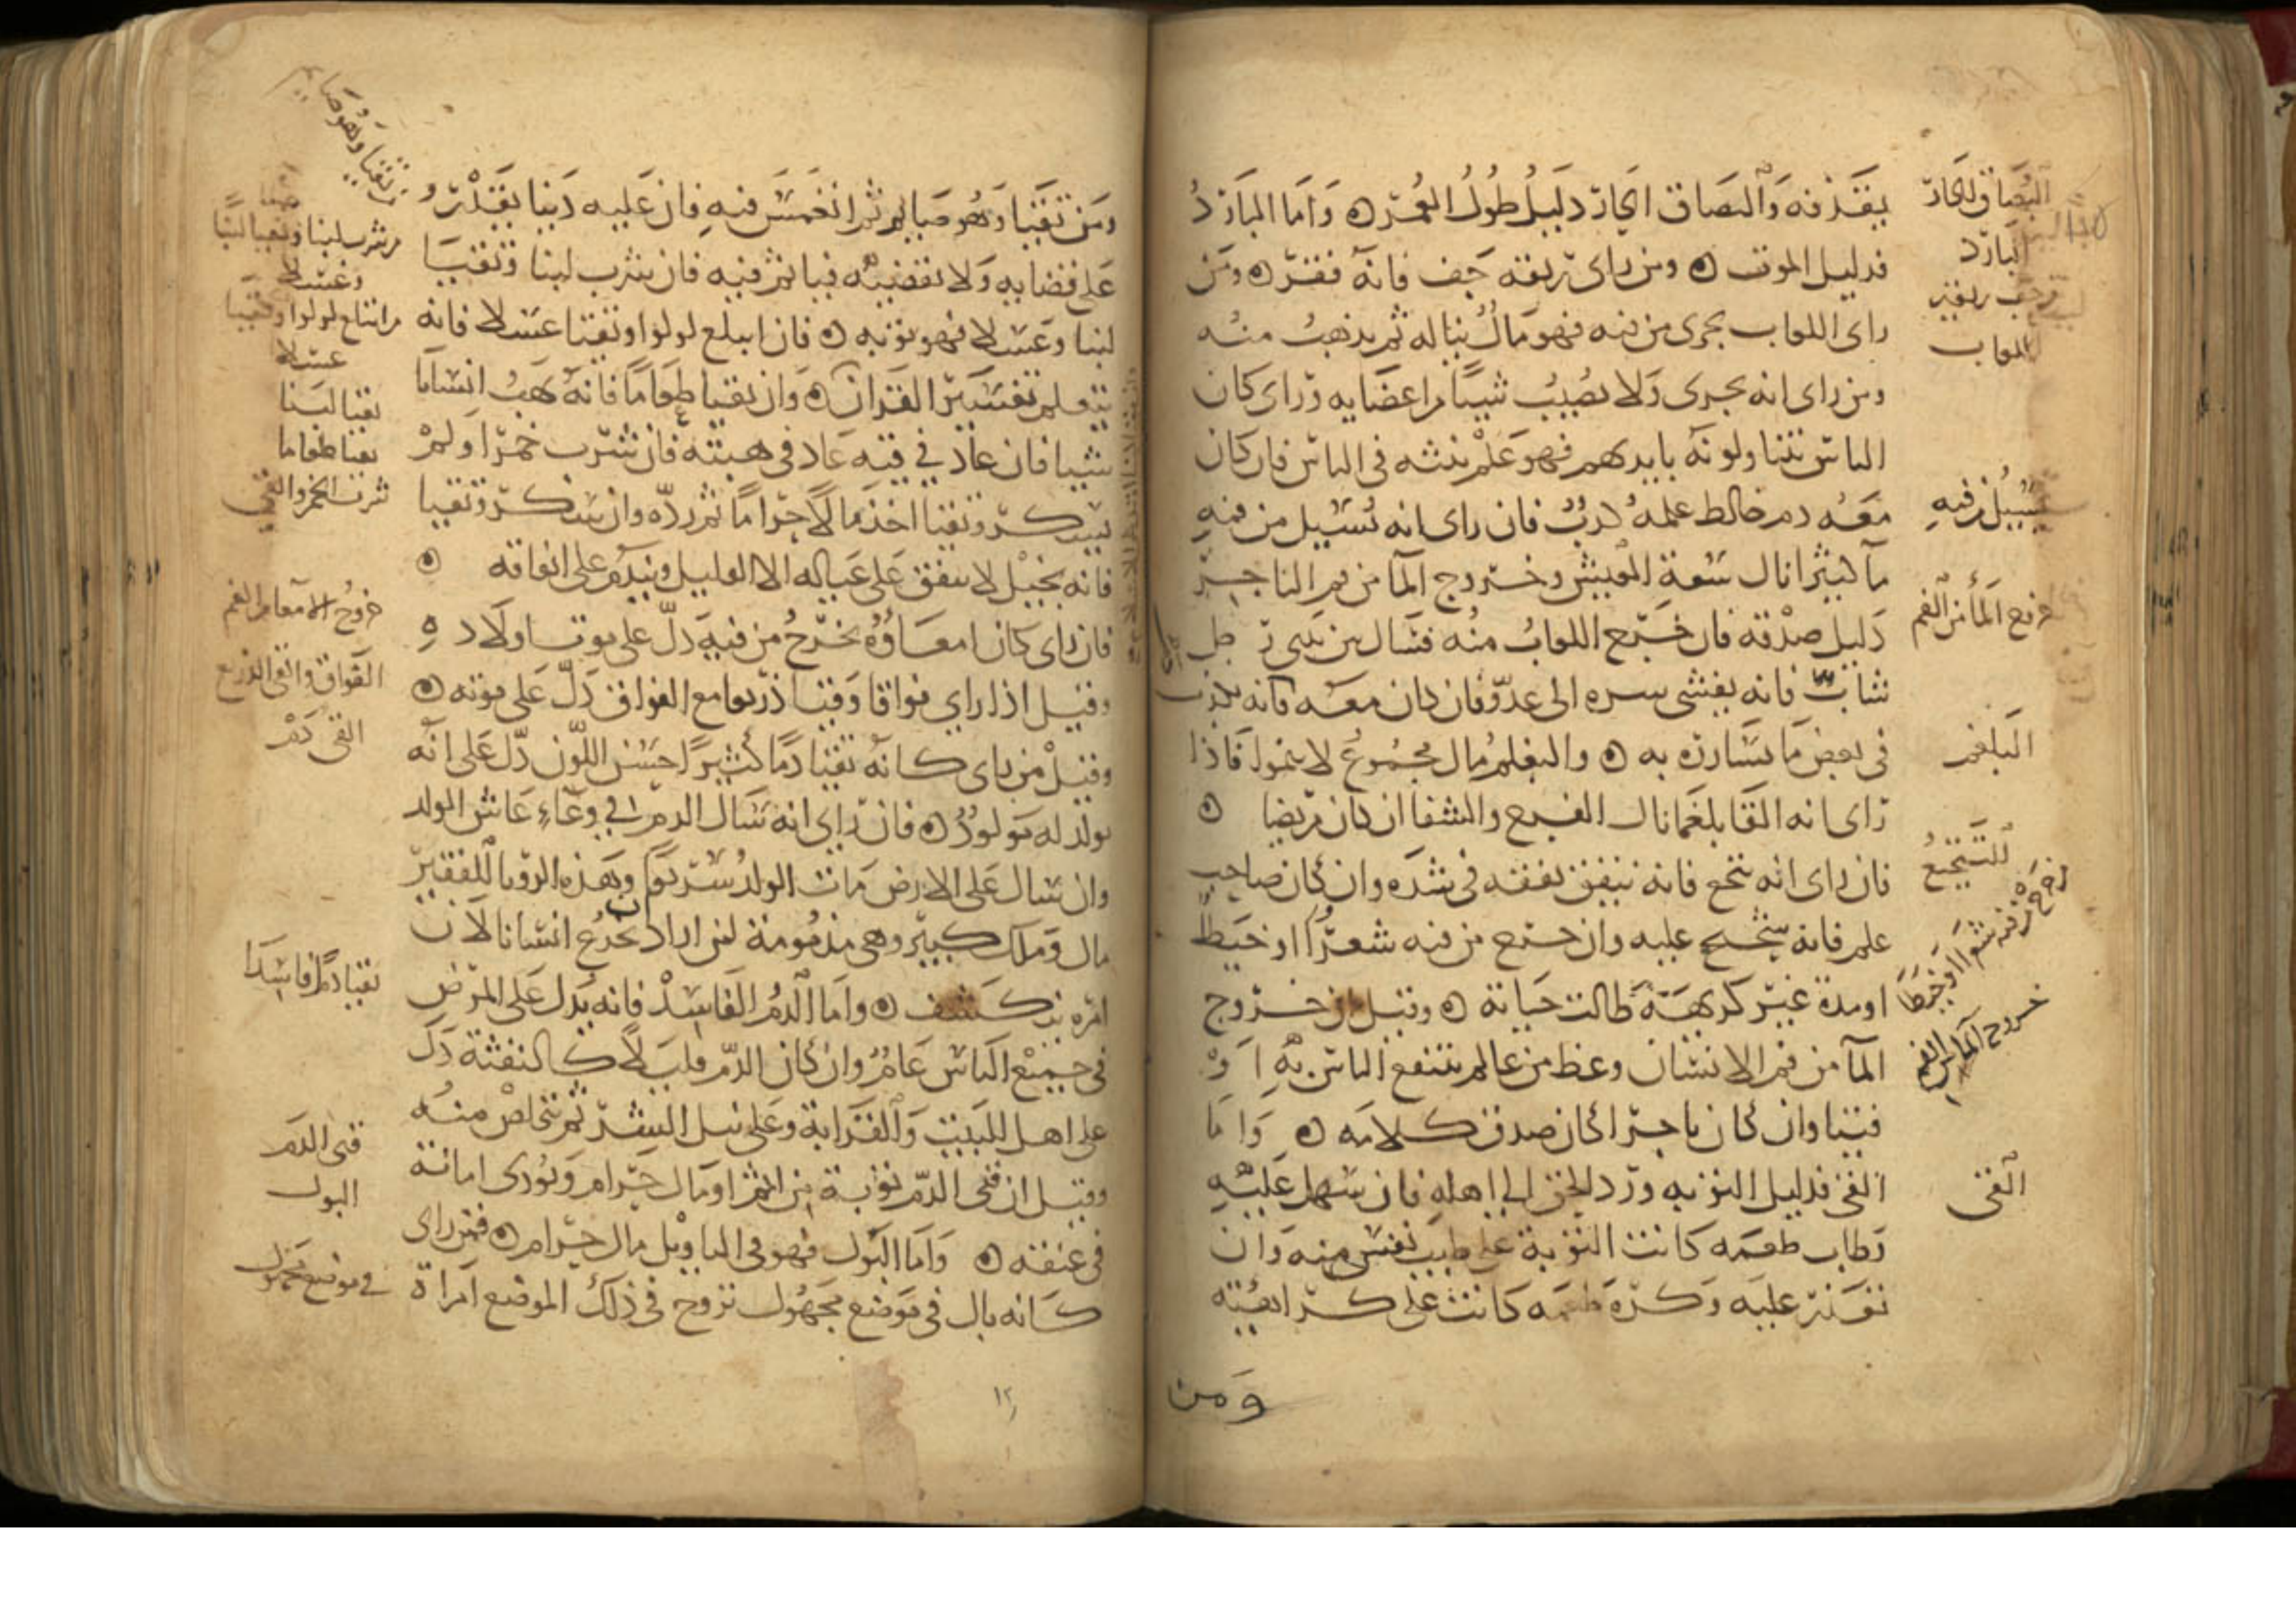 يقذفه والبصاق الحار دليل طول العمر وأما البارد
فدليل الموت ومن راى ريقه جف فانه فقر ومن
راى اللعاب يجرى من فيه فهو مال يناله ثم يذهب منه
ومن راى انه يجرى ولا يصيب شيئا من اعضايه وراى كان
الناس يتناولونه بايديهم فهو علم يبثه فى الناس فان كان
معه دم خالط علمه كذب فان راى انه يسيل من فمه
مآ كثير نال سعة المعيش وخروج المآ من فم التاجر
دليل صدقه فان خرج اللعاب منه فسال من رجل
شاب فانه يفشى سره الى عدو فان كان معه كانه يكذب
فى بعض ما يسارره به والبلغم مال مجموع لا ينمو فاذا
راى انه القا بلغما نال الفرج والشفا ان كان مريضا
فان راى انه تنخع فانه ينفق نفقته فى شده وان كان صاحب
علم فانه عليه وان خرج من فيه شعرا او خيط
او مدة غير كريهة طالت حياته وقيل ان خروج
المآ من فم الانسان وعظ من عالم ينتفع الناس به او
فتيا وان كان تاجرا كان صدق كلامه واما
القئ فدليل التوبه ورد الحق الى اهله فان سهل عليه
وطاب طعمه كانت التوبة على طيب نفس منه وان
تعذر عليه وكره طعمه كانت على كراهية
ومن
البصاق الحار
البارد
جف ريقه
اللعاب
يسيل من فيه
خروج المآ من الفم
البلغم
التنخع
خرج من فمه شعرا او خيطا
خروج المآ من الفم
القئ
ومن تقيا وهو صايم ثم انغمس فيه فان عليه دينا يقدر
على قضايه ولا يقضيه فياثم فيه فان شرب لبنا وتقيا
لبنا وعسلا فهو توبه فان ابتلع لولوا وتقيا عسلا فانه
يتعلم تفسير القران وان تقيا طعاما فانه يهب انسانا
شيا فان عاد في قيه عاد فى هبته فان شرب خمرا ولم
يسكر وتقيا اخذ مالا حراما ثم رده وان سكر وتقيا
فانه بخيل لا ينفق على عياله الا القليل ويندم على انفاقه
فان راى كان امعاؤه تخرج من فيه دل على موت اولاده
وقيل اذا راي فواقا وقيا ذريعا مع الفواق دل على موته
وقيل من راى كانه تقيا دما كثيرا حسن اللون دل على انه
يولد له مولود فان راي انه سال الدم في وعاء عاش المولد
وان سال على الارض مات الولد سريعا وهذه الرؤيا للفقير
مال وملك كبير وهى مذمومة لمن اراد يخدع انسانا لان
امره ينكشف واما الدم الفاسد فانه يدل على المرض
فى جميع الناس عام وان كان الدم قليلا كالنفثة دل
على اهل البيت والقرابة وعلى نيل الشر ثم يتخلص منه
وقيل ان قى الدم توبة من اثم او مال حرام ويؤدى امانة
فى عنقه واما البول فهو فى التاويل مال حرام فمن راى
كانه بال فى موضع مجهول تزوج فى ذلك الموضع امراة
١٢
تقيا وهو صايم
شرب لبنا وتقيا لبنا
وعسلا
ابتلع لولوا وتقيا
عسلا
تقيا لبنا
تقيا طعاما
شرب الخمر والقى
خروج الامعا من الفم
الفواق والقى الذريع
القى دم
تقيا دما فاسدا
قى الدم
البول
فى موضع مجهول